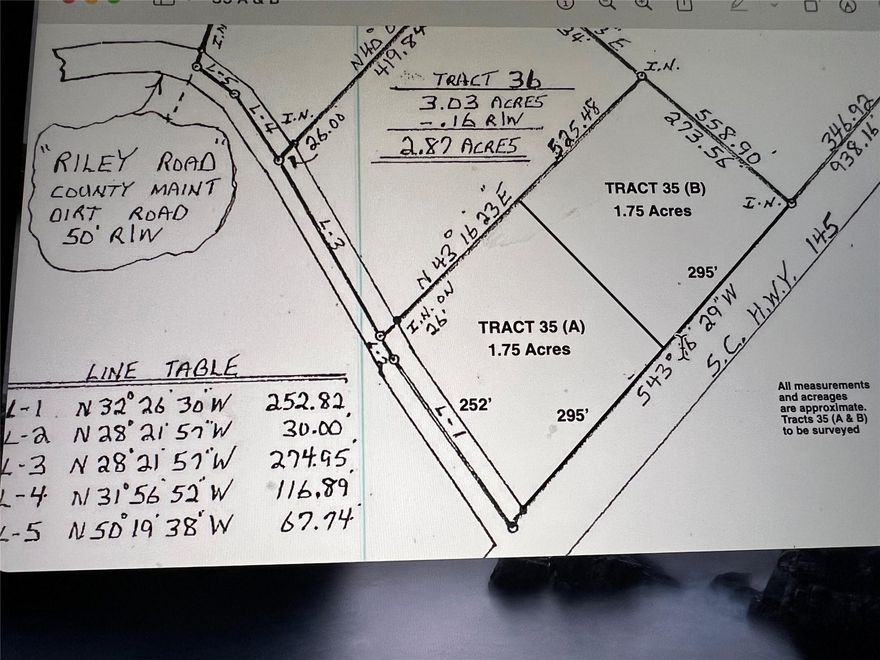 I.N
L-5
L-4
I.N.
26.00'
419.84
TRACT 36
3.03 ACRES
-.16 R/W
2.87 ACRES
"RILEY ROAD"
COUNTY MAINT
DIRT ROAD
50' R/W
L-3
N 43° 16' 23" E
525.48
I.N. ON
26'
I.N.
558.90'
273.56
I.N.
346.92
938.16'
TRACT 35 (B)
1.75 Acres
295'
TRACT 35 (A)
1.75 Acres
252'
295'
L-1
S.C. H.W.Y. 145
LINE TABLE
L-1 N 32° 26' 30" W 252.82'
L-2 N 28° 21' 57" W 30.00'
L-3 N 28° 21' 57" W 274.95'
L-4 N 31° 56' 52" W 116.89'
L-5 N 50° 19' 38" W 67.74'
All measurements
and acreages
are approximate.
Tracts 35 (A & B)
to be surveyed